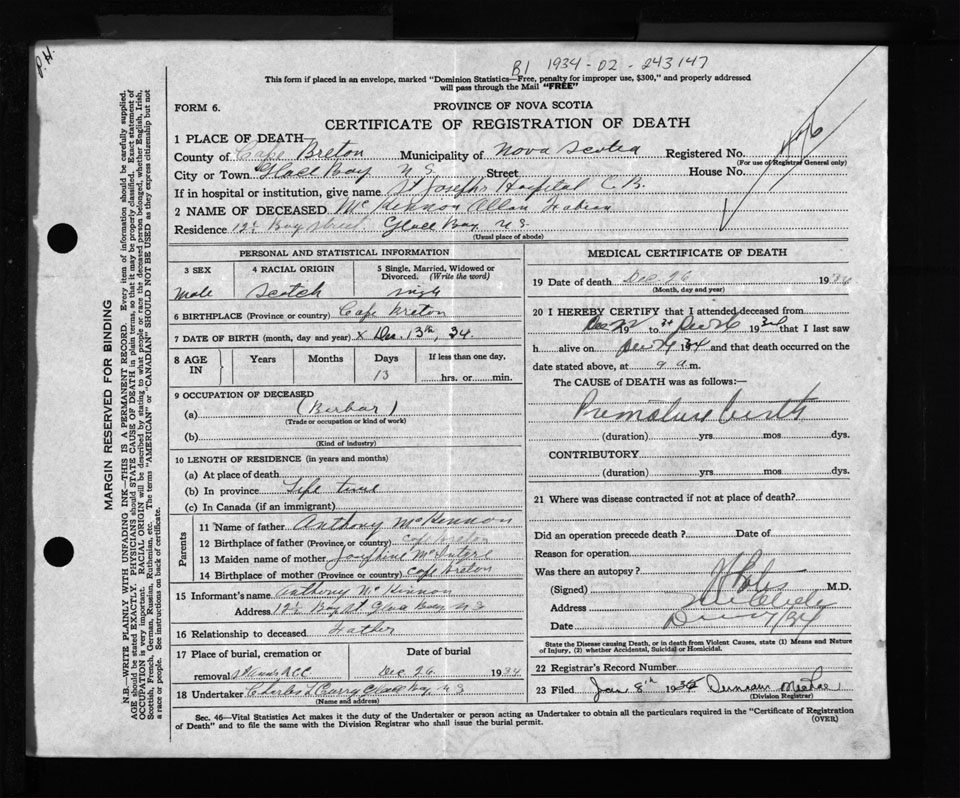 P.H.
B1 1934-02-243147
This form if placed in an envelope, marked "Dominion Statistics—Free, penalty for improper use, $300," and properly addressed
will pass through the Mail "FREE"
FORM 6.
PROVINCE OF NOVA SCOTIA
CERTIFICATE OF REGISTRATION OF DEATH
1 PLACE OF DEATH—
County of Cape Breton Municipality of Nova Scotia Registered No.
(For use of Registrar General only)
City or Town Glace Bay N.S. Street House No.
If in hospital or institution, give name St Josephs Hospital C.B.
2 NAME OF DECEASED McKennon Allan Fabian
Residence 12½ Bay Street Glace Bay N S
(Usual place of abode)
PERSONAL AND STATISTICAL INFORMATION
3 SEX 4 RACIAL ORIGIN 5 Single, Married, Widowed or Divorced. (Write the word)
Male Scotch single
6 BIRTHPLACE (Province or country) Cape Breton
7 DATE OF BIRTH (month, day and year) x Dec. 13th, 34.
8 AGE IN Years Months Days If less than one day,
13 hrs. or min.
9 OCCUPATION OF DECEASED
(a) (Barbar)
(Trade or occupation or kind of work)
(b)
(Kind of industry)
10 LENGTH OF RESIDENCE (in years and months)
(a) At place of death
(b) In province Life time
(c) In Canada (if an immigrant)
Parents
11 Name of father Anthony McKennon
12 Birthplace of father (Province or country) Cape Breton
13 Maiden name of mother Josephine McIntyre
14 Birthplace of mother (Province or country) Cape Breton
15 Informant's name Anthony McKennon
Address 12½ Bay St Glace Bay N S
16 Relationship to deceased Father
17 Place of burial, cremation or Date of burial
removal Dec 26 1934
18 Undertaker Curry Glace Bay N S
(Name and address)
MEDICAL CERTIFICATE OF DEATH
19 Date of death Dec 26 1934
(Month, day and year)
20 I HEREBY CERTIFY that I attended deceased from
Dec 19 34 to Dec 26 1934 that I last saw
h alive on Dec 34 and that death occurred on
date stated above, at 9 a m.
The CAUSE OF DEATH was as follows:—
Premature birth
(duration) yrs. mos. dys.
CONTRIBUTORY
(duration) yrs. mos. dys.
21 Where was disease contracted if not at place of death?
Did an operation precede death? Date of
Reason for operation
Was there an autopsy?
(Signed) M.D.
Address
Date Dec /34
State the Disease causing Death, or in death from Violent Causes, state (1) Means and Nature
of Injury, (2) whether Accidental, Suicidal or Homicidal.
22 Registrar's Record Number
23 Filed Jan 8th 193 Duncan
(Division Registrar)
Sec. 46—Vital Statistics Act makes it the duty of the Undertaker or person acting as Undertaker to obtain all the particulars required in the "Certificate of Registration
of Death" and to file the same with the Division Registrar who shall issue the burial permit. (OVER)
MARGIN RESERVED FOR BINDING
N.B.—WRITE PLAINLY WITH UNFADING INK—THIS IS A PERMANENT RECORD. Every item of information should be carefully supplied.
AGE should be stated EXACTLY. PHYSICIANS should STATE CAUSE OF DEATH in plain terms, so that it may be properly classified. Exact statement of
OCCUPATION is very important. RACIAL ORIGIN will be described by stating to what people or race the deceased person belonged, whether English, Irish,
Scottish, French, German, Russian, Ruthenian, etc. The terms "AMERICAN" or "CANADIAN" SHOULD NOT BE USED as they express citizenship but not
a race or people. See instructions on back of certificate.